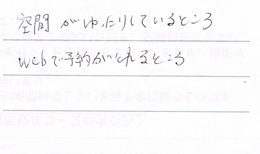 空間がゆったりしているところ
Webで予約がとれるところ